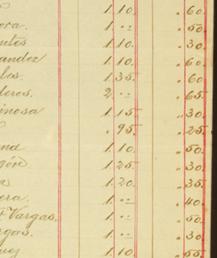 1.10. .60.
ora. 1. " .50.
untos 1.10. .30.
nandez 1.10. .60.
los. 1.35. .60.
deros. 2. " .65.
inosa 1.15 .30
.95 .25.
na 1.10. .50.
gón 1.25. .30.
1.20. .35.
era. 1. " .40
F Vargas. 1. " .50
rgas. 1. " .30.
1.10 .55.